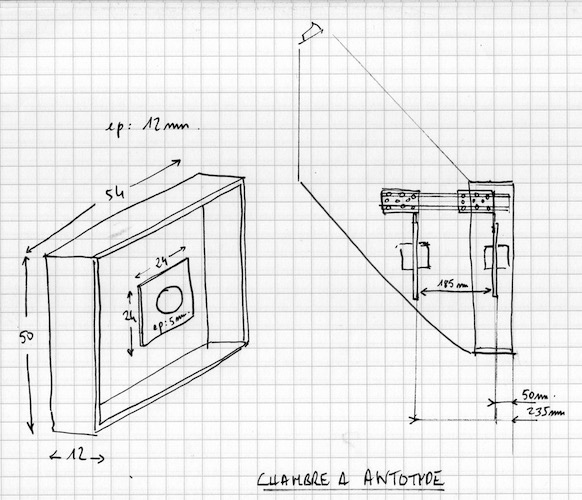 ep: 12 mm.
54
24
24
ep: 5 mm.
50
12
185 mm
50 mm.
235 mm
CHAMBRE A AWTOTYPE